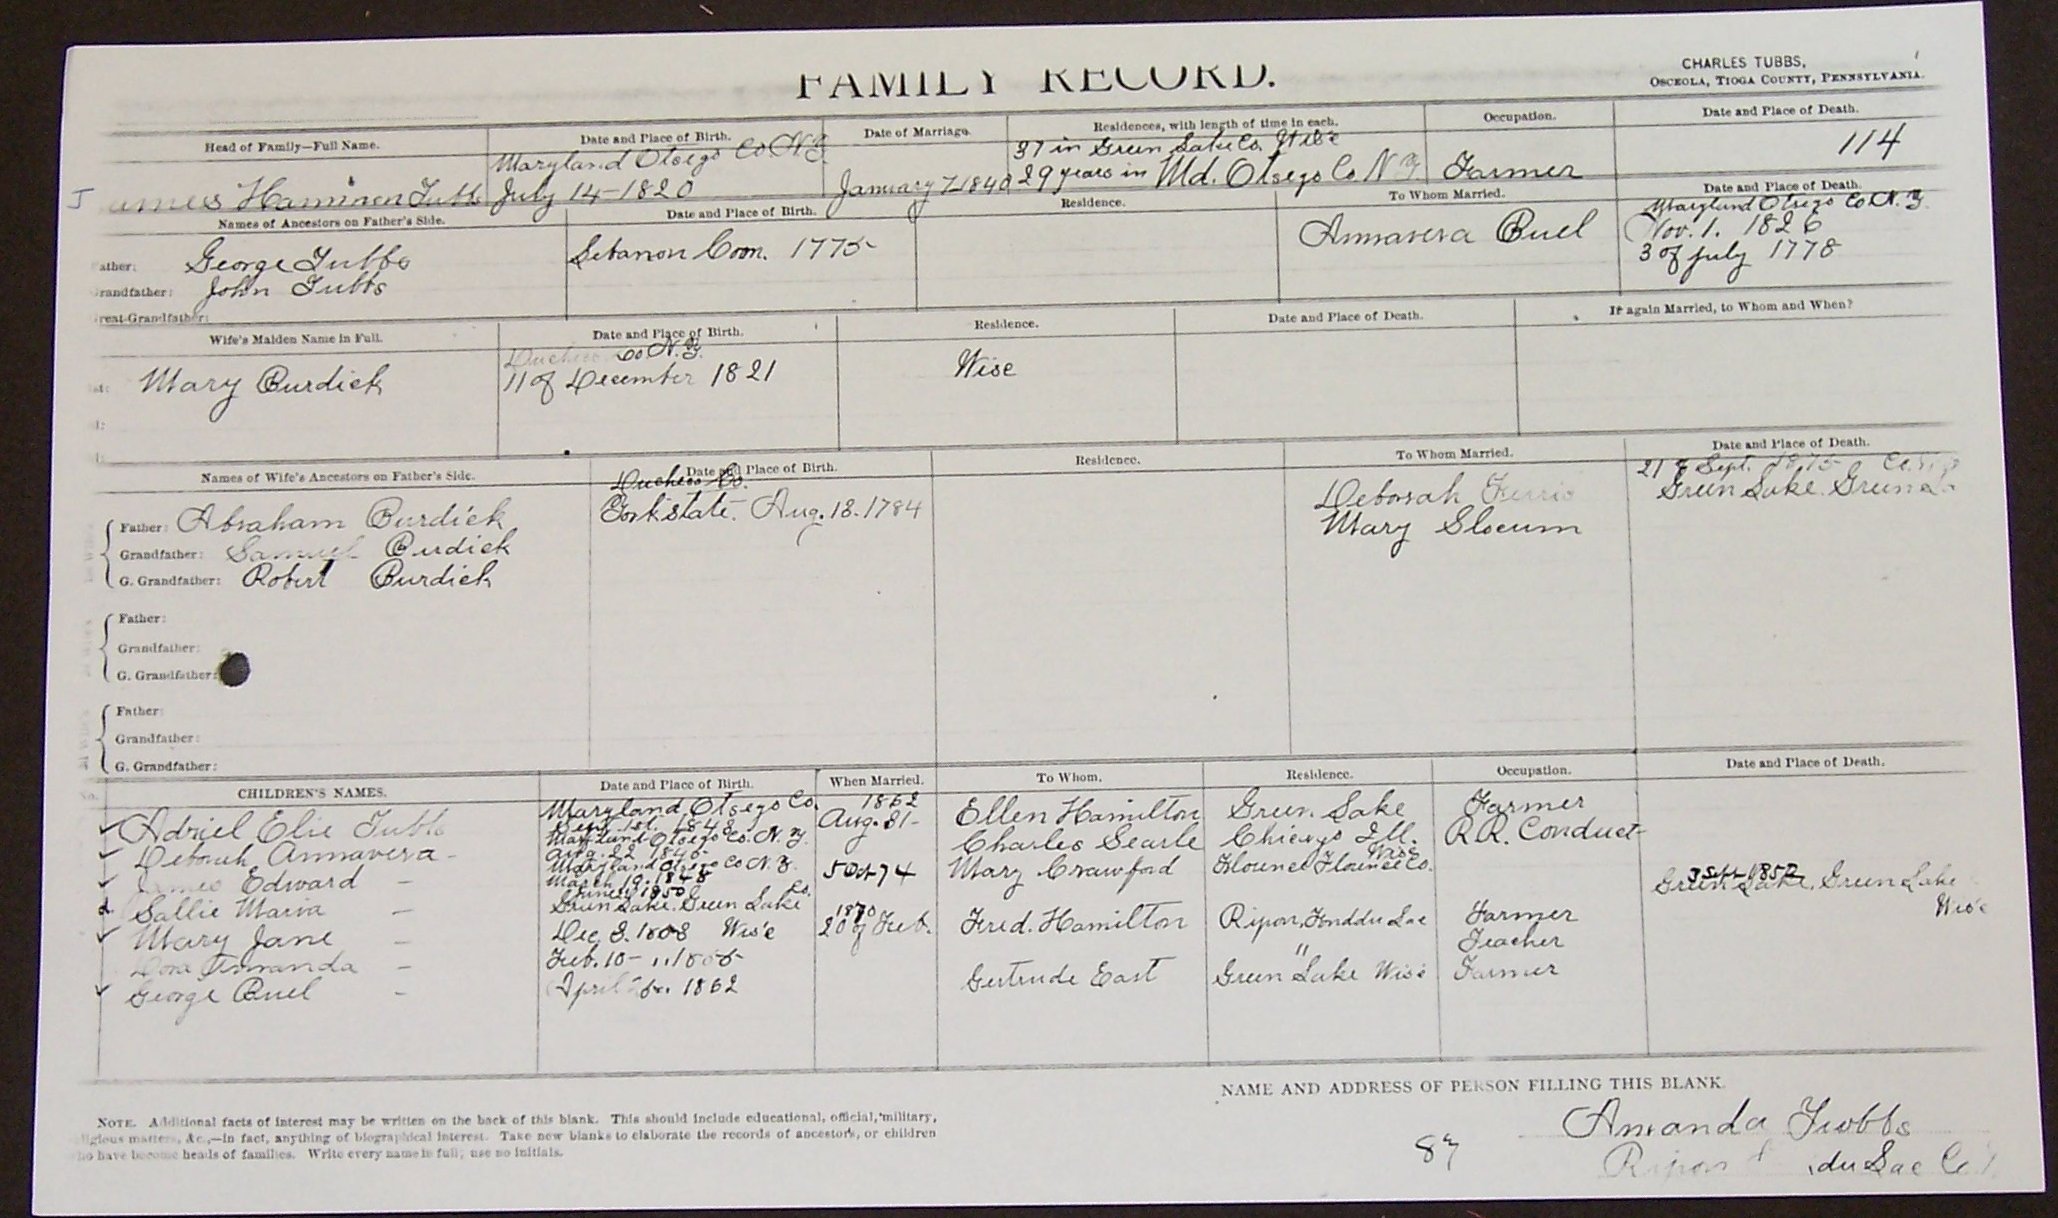 FAMILY RECORD.
CHARLES TUBBS,
OSCEOLA, TIOGA COUNTY, PENNSYLVANIA.
Head of Family—Full Name. Date and Place of Birth. Date of Marriage. Residences, with length of time in each. Occupation. Date and Place of Death.
Maryland Otsego Co N.Y. 37 in Green Lake Co. Wis'c 114
James Tubbs July 14-1820 January 7-1840 29 years in Md. Otsego Co N.Y Farmer
Names of Ancestors on Father's Side. Date and Place of Birth. Residence. To Whom Married. Date and Place of Death.
Maryland Otsego Co N.Y.
ather: George Tubbs Lebanon Conn. 1775 Annavera Buel Nov. 1. 1826
randfather: John Tubbs 3 of july 1778
reat-Grandfather:
Wife's Maiden Name in Full. Date and Place of Birth. Residence. Date and Place of Death. If again Married, to Whom and When?
Duchess Co. N.Y.
Mary Burdick 11 of December 1821 Wisc
Names of Wife's Ancestors on Father's Side. Date and Place of Birth. Residence. To Whom Married. Date and Place of Death.
Duchess Co. 21 of Sept. 1875
Father: Abraham Burdick York state. Aug. 18. 1784 Deborah Ferris Green Lake. Green La
Grandfather: Samuel Burdick Mary Slocum
G. Grandfather: Robert Burdick
Father:
Grandfather:
G. Grandfather:
Father:
Grandfather:
G. Grandfather:
CHILDREN'S NAMES. Date and Place of Birth. When Married. To Whom. Residence. Occupation. Date and Place of Death.
Maryland Otsego Co. 1862
Adriel Elie Tubbs Aug. 31- Ellen Hamilton Green Lake Farmer
Maryland Otsego Co. N.Y.
Deborah Annavera - Aug. 22 1845 Charles Searle Chicago Ill. R.R. Conduct-
Maryland Otsego Co N.Y. Wisc
James Edward - March 19. 1848 5 Oct 74 Mary Crawford Florence Florence Co.
1850 3 Sept 1852
Sallie Maria - Green Lake. Green Lake Co. Green Lake. Green Lake
1870 Wis'c
Mary Jane - Dec. 8. Wis'c 20 of Feb. Fred. Hamilton Ripon, Fond du Lac Farmer
Dora Amanda - Feb. 10- " Teacher
George Buel - April 1862 Gertrude East Green Lake Wisc Farmer
NAME AND ADDRESS OF PERSON FILLING THIS BLANK.
NOTE. Additional facts of interest may be written on the back of this blank. This should include educational, official, military,
ligious matters, &c.,—in fact, anything of biographical interest. Take new blanks to elaborate the records of ancestors, or children
ho have become heads of families. Write every name in full; use no initials.
Amanda Tubbs
87
Ripon du Lac Co